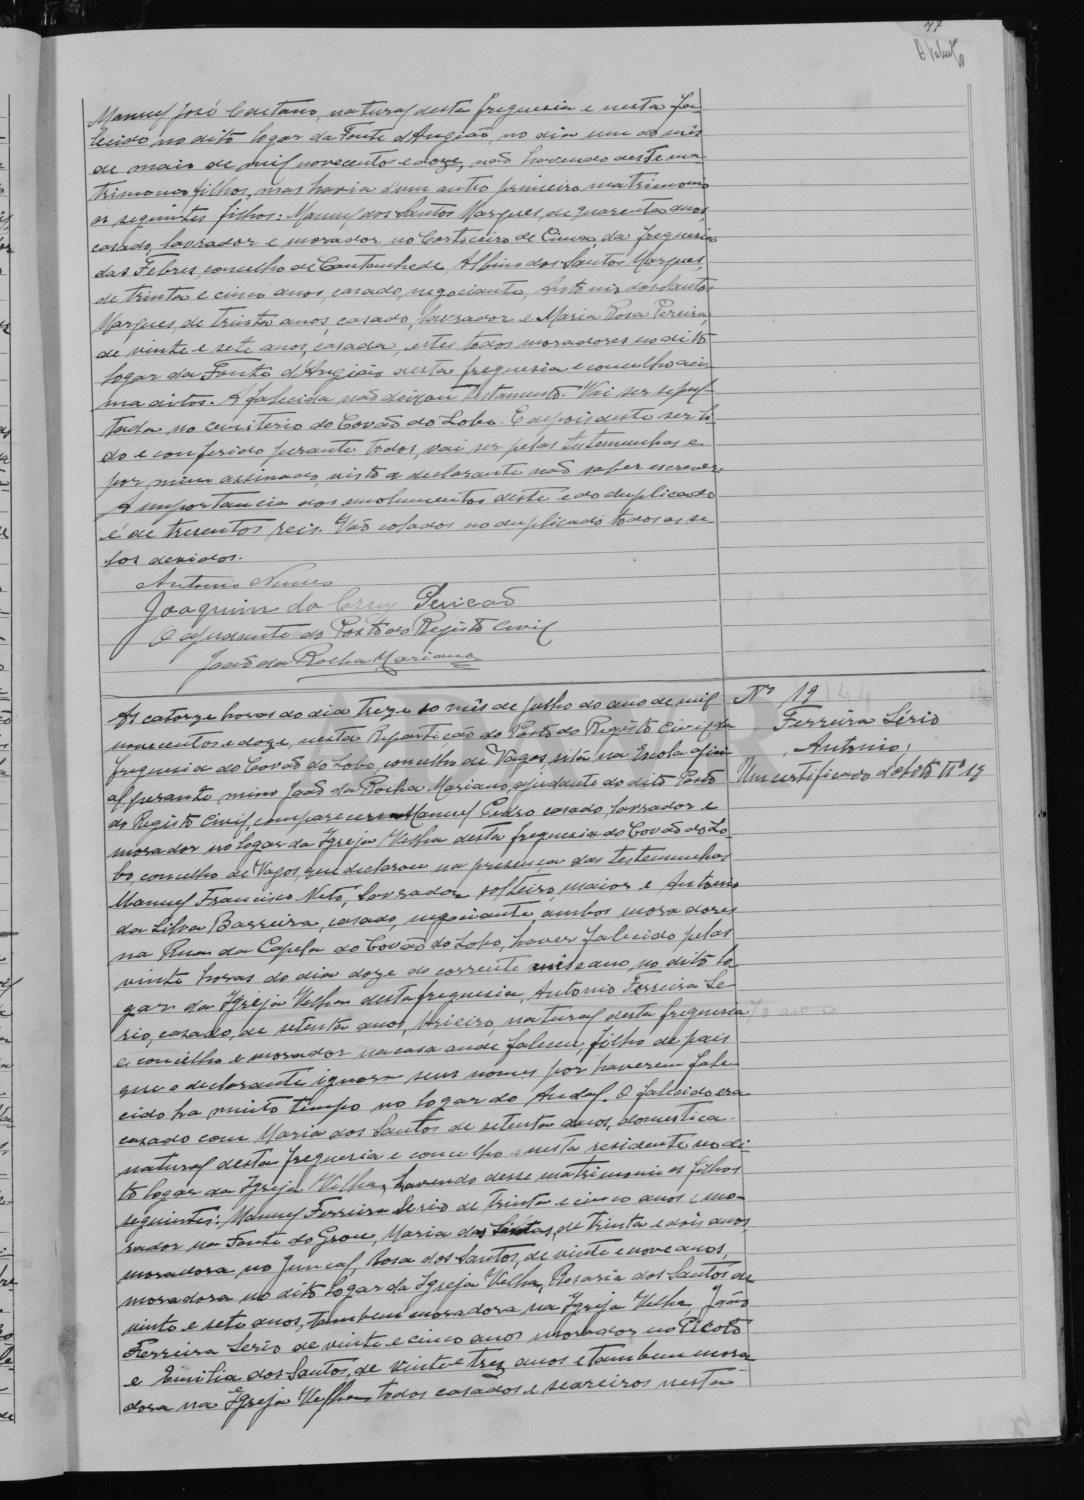 47
Manuel José Caetano, natural desta freguesia e nesta fa-
lecido no dito logar da Fonte d'Angião, no dia um do mês
de maio de mil novecentos e doze, não havendo deste ma-
trimonio filhos, mas havia d'um outro primeiro matrimonio
os seguintes filhos: Manuel dos Santos Marques, de quarenta anos,
casado, lavrador e morador no Corticeiro de Cima, da freguesia
das Febres, concelho de Cantanhede, Albino dos Santos Marques,
de trinta e cinco anos, casado, negociante, Antonio dos Santos
Marques, de trinta anos, casado, lavrador e Maria Rosa Pereira,
de vinte e sete anos, casada, estes todos moradores no dito
logar da Fonte d'Angião desta freguesia e concelho aci-
ma ditos. A falecida não deixou testamento. Vai ser sepul-
tada no cemiterio do Covão do Lobo. E depois deste ser li-
do e conferido perante todos, vai ser pelas testemunhas e
por mim assinado, visto a declarante não saber escrever.
A importancia dos emolumentos deste e do duplicado
é de tresentos reis. Vão colados no duplicado todos os se-
los devidos.
Antonio Nunes
Joaquim da Cruz Pericão
O ajudante do Posto do Registo Civil
João da Rocha Mariano
Nº 19
Ferreira Sério
Antonio
Um certificado d'obito Nº 19
As catorze horas do dia treze do mês de Julho do ano de mil
novecentos e doze, nesta Repartição do Posto do Registo Civil da
freguesia do Covão do Lobo, concelho de Vagos, sita na Escola ofici-
al perante mim João da Rocha Mariano, ajudante do dito Posto
do Registo Civil, compareceu Manuel Pedro casado, lavrador e
morador no logar da Igreja Velha desta freguesia do Covão do Lo-
bo, concelho de Vagos, que declarou na presença das testemunhas
Manuel Francisco Neto, lavrador, solteiro, maior e Antonio
da Silva Barreira, casado, negociante, ambos moradores
na Rua da Capela do Covão do Lobo, haver falecido pelas
vinte horas do dia doze do corrente mês e ano, no dito lo-
gar da Igreja Velha desta freguesia, Antonio Ferreira Se-
rio, casado, de setenta anos, natural desta freguesia
e concelho e morador na casa onde faleceu, filho de pais
que o declarante ignora seus nomes por haverem fale-
cido ha muito tempo no logar do Andal. O falecido era
casado com Maria dos Santos de setenta anos, domestica,
natural desta freguesia e concelho e nesta residente no di-
to logar da Igreja Velha, havendo desse matrimonio os filhos
seguintes: Manuel Ferreira Serio de trinta e cinco anos e mo-
rador na Fonte do Grou, Maria dos Santos, de trinta e dois anos,
moradora no Juncal, Rosa dos Santos, de vinte e nove anos,
moradora no dito logar da Igreja Velha, Rosaria dos Santos de
vinte e sete anos, tambem moradora na Igreja Velha, João
Ferreira Serio de vinte e cinco anos morador no Picoto
e Emilia dos Santos, de vinte e tres anos e tambem mora-
dora na Igreja Velha, todos casados e seareiros nesta